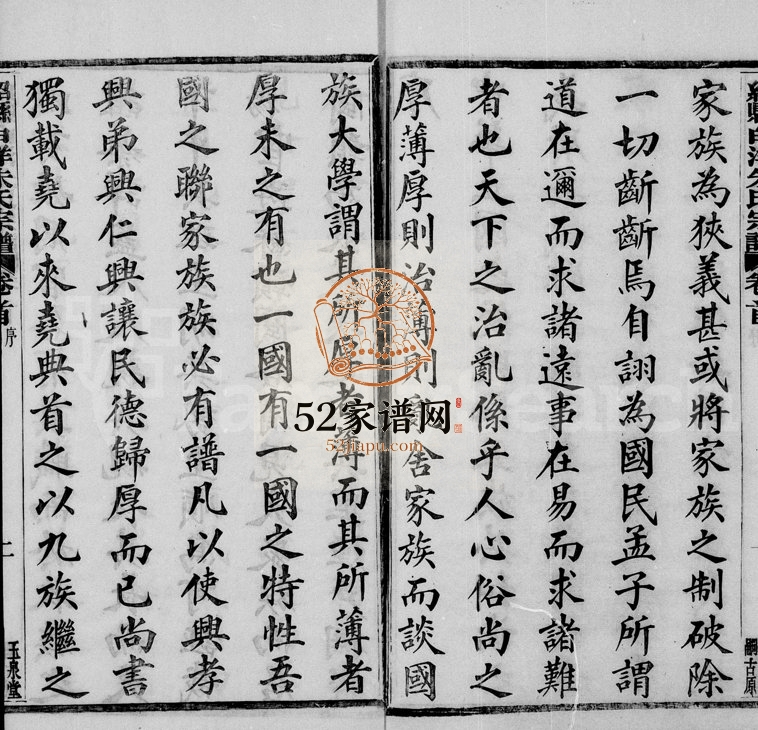 家族為狹義甚或將家族之制破除
一切齗齗焉自詡為國民孟子所謂
道在邇而求諸遠事在易而求諸難
者也天下之治亂係乎人心俗尚之
厚薄厚則治薄則亂舍家族而談國
族大學謂其所厚者薄而其所薄者
厚未之有也一國有一國之特性吾
國之聯家族族必有譜凡以使興孝
興弟興仁興讓民德歸厚而已尚書
獨載堯以來堯典首之以九族繼之
朱氏宗譜
卷首
序
玉泉堂
52家谱网
52jiapu.com